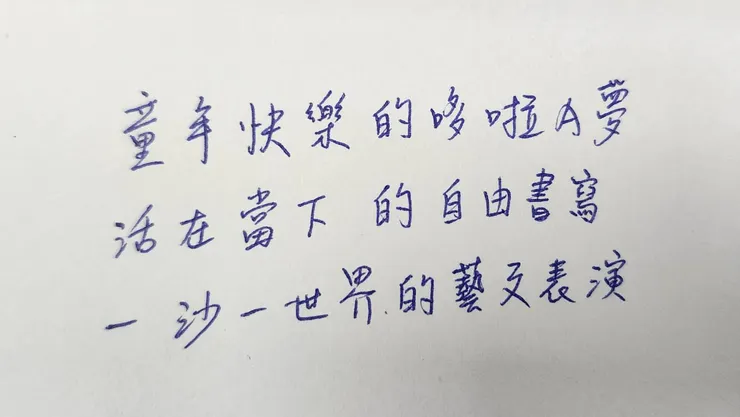 童年快樂的哆啦A夢
活在當下 的自由書寫
一沙一世界的藝文表演